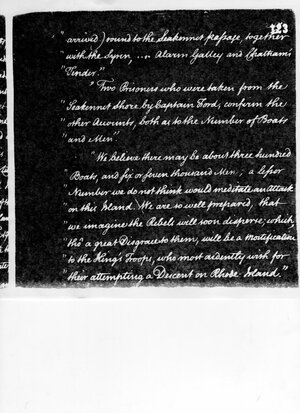 123
"arrived) round to the Seakonnet Passage, together
with the Syren .... Alarm Galley and Chatham's
"Tender"
"Two Prisoners who were taken from the
"Seakonnet Shore by Captain Ford, confirm the
"other Accounts, both as to the Number of Boats
"and Men"
"We believe there may be about three hundred
"Boats, and six or seven thousand Men; a lesser
"Number we do not think would meditate an attack
"on this Island. We are so well prepared, that
"we imagine the Rebels will soon disperse; which,
"tho' a great Disgrace to them, will be a Mortification
"to the King's Troops, who most ardently wish for
"their attempting a Descent on Rhode Island."